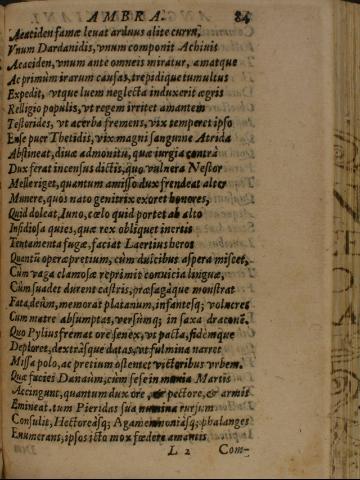 AMBRA. 84
Aeatiden famæ leuat arduus alite curru,
Vnum Dardanidis, vnum componit Achiuis
Aeaciden, vnum ante omneis miratur, amatque
Ac primùm irarum causas, trepidique tumultus
Expedit, vtque luem neglecta induxerit ægris
Relligio populis, vt regem irritet amantem
Testorides, vt acerba fremens, vix temperet ipso
Ense puer Thetidis, vix magni sanguine Atridæ
Abstineat, diuæ admonitu, quæ iurgia contrà
Dux ferat incensus dictis, quo vulnera Nestor
Melle riget, quantum amisso dux frendeat alter
Munere, quos nato genitrix exoret honores,
Quid doleat, Iuno, cælo quid portet ab alto
Insidiosa quies, quæ rex obliquet inertis
Tentamenta fugæ, faciat Laertius heros
Quentū operæpretium, cùm dulcibus aspera miscet,
Cùm vaga clamosæ reprimit conuicia linguæ,
Cùm suadet durent castris, præsagàque monstrat
Fata, deûm, memorat platanum, infantesq; volucres
Cum matre absumptas, versúmq; in saxa draconē.
Quo Pylius fremat ore senex, vt pacta, fidémque
Deploret, dextrásque datas, vt fulmina narret
Missa polo, ac pretium ostentet victoribus vrbem.
Quæ facies Danaûm, cùm sese in mœnia Martis
Accingunt, quantum dux ore, & pectore, & armis
Emineat. tum Pieridas sua numina rursum
Consulit, Hectoreasq; Agamemnoniasq; phalanges
Enumerans, ipsos icto mox fœdere amantis
L 2 Com-